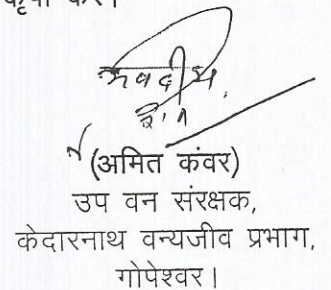 कृपा करें।
भवदीय,
(अमित कंवर)
उप वन संरक्षक,
केदारनाथ वन्यजीव प्रभाग,
गोपेश्वर।